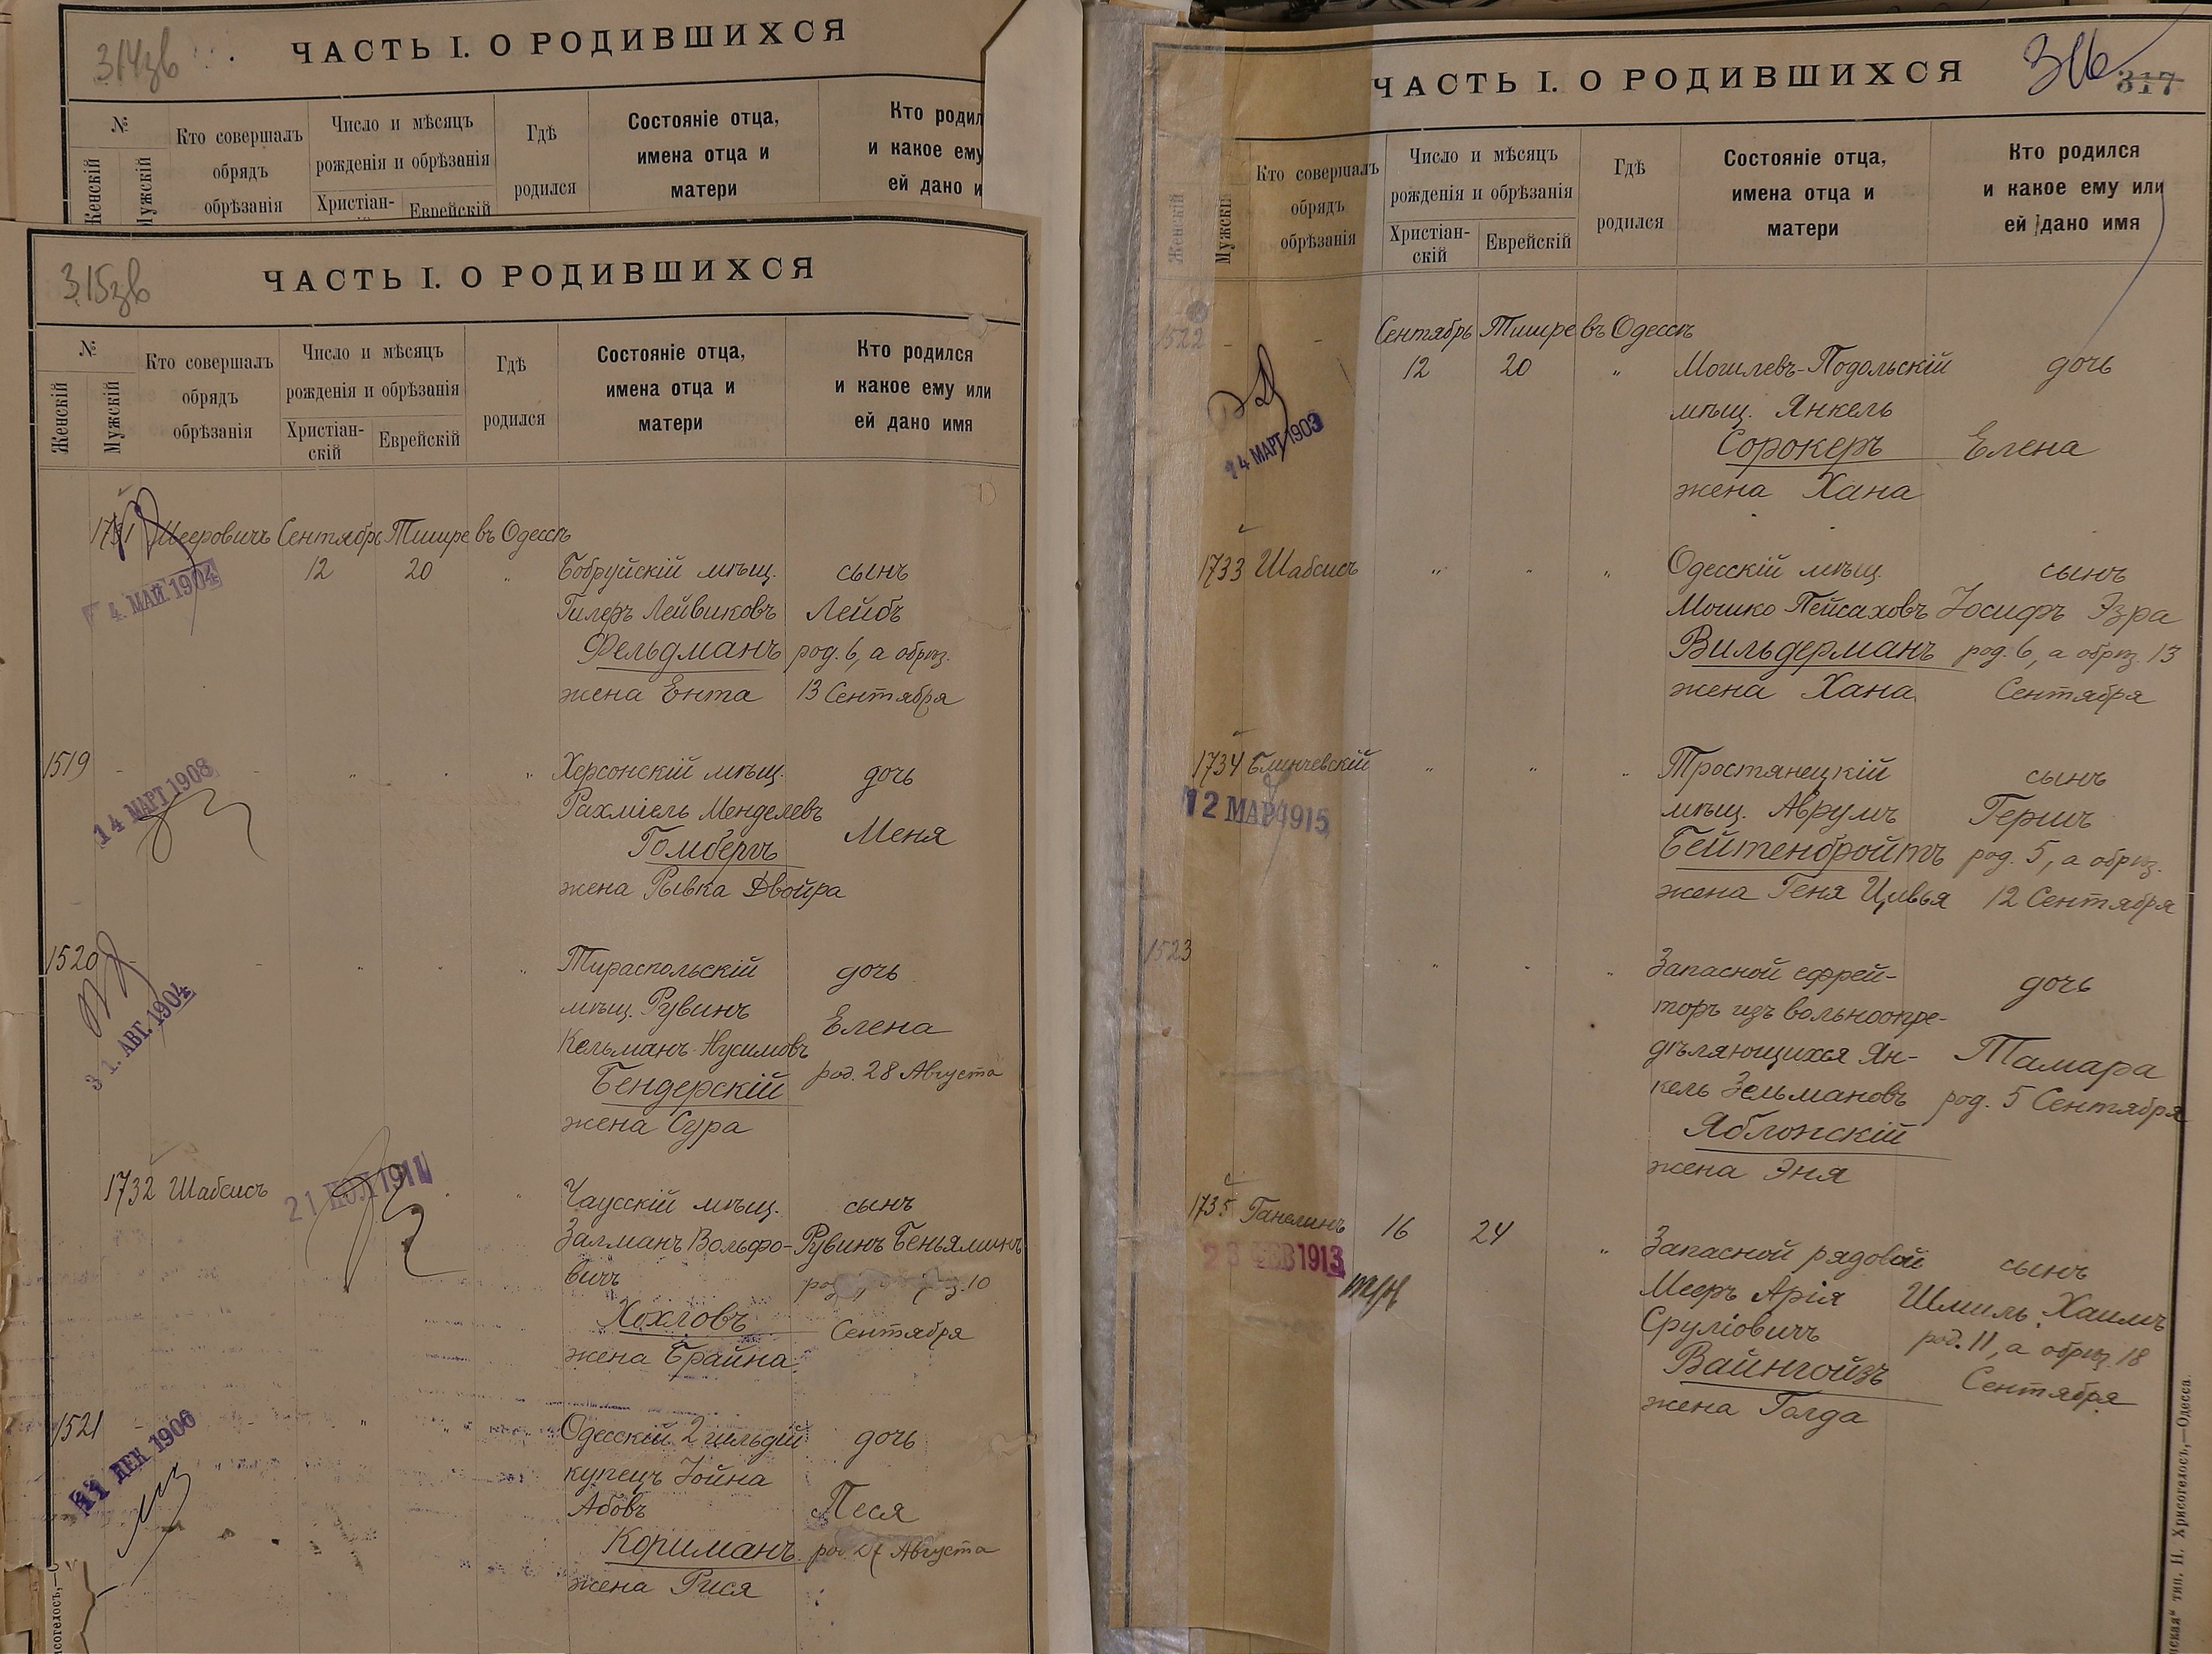 314зв
ЧАСТЬ I. О РОДИВШИХСЯ
№
Женскій
Мужскій
Кто совершалъ
обрядъ
обрѣзанія
Число и мѣсяцъ
рожденія и обрѣзанія
Христіан-
Еврейскій
Гдѣ
родился
Состояніе отца,
имена отца и
матери
Кто родил
и какое ему
ей дано и
315зв
ЧАСТЬ I. О РОДИВШИХСЯ
№
Женскій
Мужскій
Кто совершалъ
обрядъ
обрѣзанія
Число и мѣсяцъ
рожденія и обрѣзанія
Христіан-
скій
Еврейскій
Гдѣ
родился
Состояніе отца,
имена отца и
матери
Кто родился
и какое ему или
ей дано имя
1731 Мееровичъ Сентябрь Тишре въ Одессѣ
12 20 " Бобруйскій мѣщ. сынъ
4. МАЙ 1904
Гилеръ Лейвиковъ Лейбъ
Фельдманъ род. 6, а обрѣз.
жена Ента 13 Сентября
1519 - - " " " Херсонскій мѣщ. дочь
14 МАРТ 1908
Рахміель Менделевъ
Гомбергъ Меня
жена Рывка Двойра
1520 - - " " " Тираспольскій дочь
31. АВГ. 1904
мѣщ. Рувинъ Елена
Кельманъ-Нусимовъ
Бендерскій род. 28 Августа
жена Сура
1732 Шабсисъ " " Чаусскій мѣщ. сынъ
21 ИЮЛ 1911
Залманъ Вольфо- Рувинъ Беньяминъ
вичъ 10
Хохловъ Сентября
жена Брайна
1521 - - " " " Одесскій 2 гильдіи дочь
11 ДЕК 1906
купецъ Іойна
Абовъ Песя
Кориманъ род. 27 Августа
жена Рися
316
317
ЧАСТЬ I. О РОДИВШИХСЯ
Женскій
Мужскій
Кто совершалъ
обрядъ
обрѣзанія
Число и мѣсяцъ
рожденія и обрѣзанія
Христіан-
скій
Еврейскій
Гдѣ
родился
Состояніе отца,
имена отца и
матери
Кто родился
и какое ему или
ей дано имя
1522 - - Сентябрь Тишре въ Одессѣ
12 20 " Могилевъ-Подольскій дочь
14 МАРТ 1903
мѣщ. Янкель
Сорокеръ Елена
жена Хана
1733 Шабсисъ " " " Одесскій мѣщ. сынъ
Мошко Пейсаховъ Іосифъ Эзра
Вильдерманъ род. 6, а обрѣз. 13
жена Хана Сентября
1734 Блинчевскій " " " Тростянецкій сынъ
12 МАР 1915
мѣщ. Аврумъ Гершъ
Бейтенбройтъ род. 5, а обрѣз.
жена Геня Цивья 12 Сентября
1523 " " " Запасной ефрей- дочь
торъ изъ вольноопре-
дѣляющихся Ян- Тамара
кель Зельмановъ род. 5 Сентября
Яблонскій
жена Эня
1735 Ганелинъ 16 24 " Запасной рядовой сынъ
23 ФЕВ 1913
Мееръ Арія Шмиль Хаимъ
Сруліовичъ род. 11, а обрѣз. 18
Вайнгойзъ Сентября
жена Голда
тип. Н. Хрисогелосъ,—Одесса.